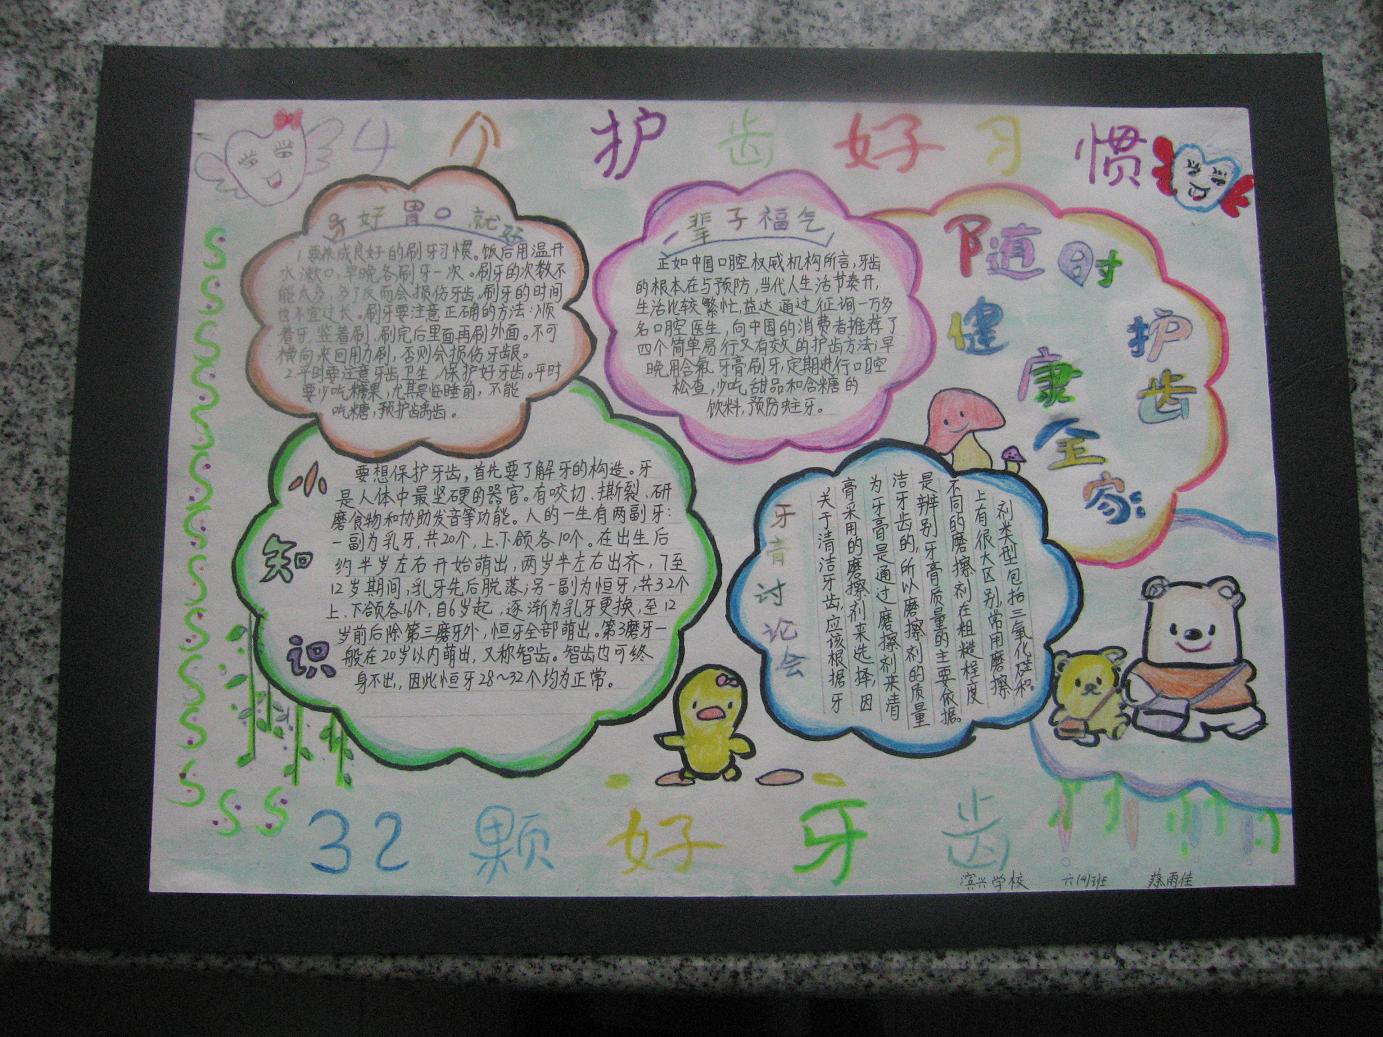 4个护齿好习惯
牙好胃口就好
1.要养成良好的刷牙习惯。饭后用温开
水漱口,早晚各刷牙一次。刷牙的次数不
能太多,多了反而会损伤牙齿。刷牙的时间
也不宜过长。刷牙要注意正确的方法:顺
着牙,竖着刷,刷完后里面再刷外面。不可
横向来回用力刷,否则会损伤牙龈。
2.平时要注意牙齿卫生,保护好牙齿。平时
要少吃糖果,尤其是临睡前,不能
吃糖,预护龋齿。
一辈子福气
正如中国口腔权威机构所言,牙齿
的根本在与预防,当代人生活节奏开,
生活比较繁忙,益达通过征询一万多
名口腔医生,向中国的消费者推荐了
四个简单易行又有效的护齿方法:早
晚用含氟牙膏刷牙,定期进行口腔
检查,少吃甜品和含糖的
饮料,预防蛀牙。
随时护齿
健康全家
小知识
要想保护牙齿,首先要了解牙的构造。牙
是人体中最坚硬的器官。有咬切、撕裂、研
磨食物和协助发音等功能。人的一生有两副牙:
一副为乳牙,共20个,上、下颌各10个。在出生后
约半岁左右开始萌出,两岁半左右出齐,7至
12岁期间,乳牙先后脱落;另一副为恒牙,共32个
上、下颌各16个,自6岁起,逐渐为乳牙更换,至12
岁前后除第三磨牙外,恒牙全部萌出。第3磨牙一
般在20岁以内萌出,又称智齿。智齿也可终
身不出,因此恒牙28~32个均为正常。
牙膏讨论会
关于清洁牙齿,应该根据牙
膏采用的磨擦剂来选择,因
为牙膏是通过磨擦剂来清
洁牙齿的,所以磨擦剂的质量
是辨别牙膏质量的主要依据。
不同的磨擦剂在粗糙程度
上有很大区别,常用磨擦
剂类型包括二氧化硅和。
32颗好牙齿
滨兴学校 六(4)班 蔡雨佳